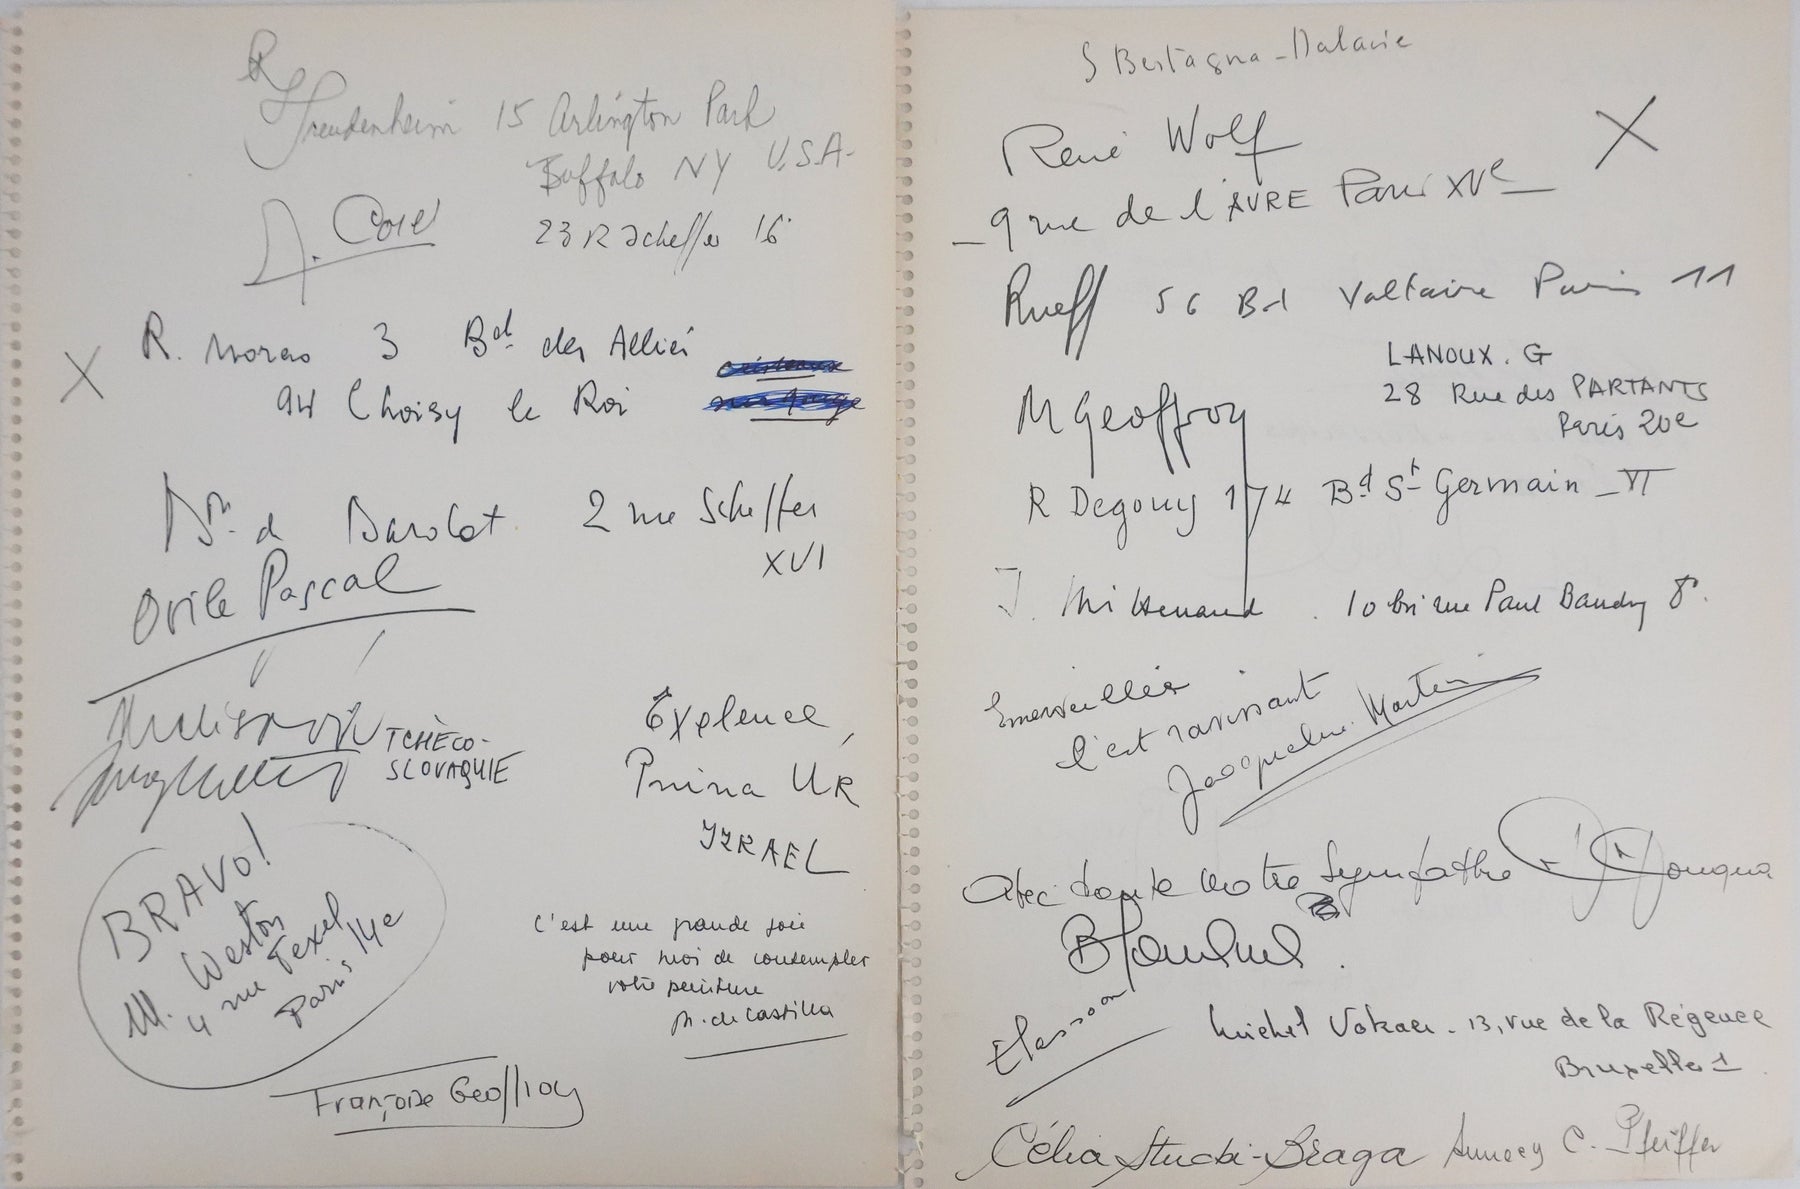 R Freudenheim 15 Arlington Park
Buffalo NY U.S.A-
23 R Scheffer 16
R. 3 Bd des Alliés
94 Choisy le Roi
2 rue Scheffer
XVI
Pascal
TCHÈCO-
SLOVAQUIE
Exelence
Pnina UR
IZRAEL
BRAVO!
M. Weston
4 rue Texel
Paris 14e
C'est une grande joie
pour moi de contempler
votre peinture
M. de Castilla
Françoise Geoffroy
S Bertagna-
René Wolf
9 rue de l'AVRE Paris XVe
Rueff 56 Bd Voltaire Paris 11
LANOUX. G
28 Rue des PARTANTS
Paris 20e
M Geoffroy
R Degouy 174 Bd St Germain _ VI
J. Mittenaud. 10 bis rue Paul Baudry 8e.
Emerveillée
C'est ravissant
Jacqueline Martin
Avec toute notre Sympathie
Michel - 13, rue de la Régence
Bruxelles 1
Célia Stucki-Braga Annecy C. Pfeiffer